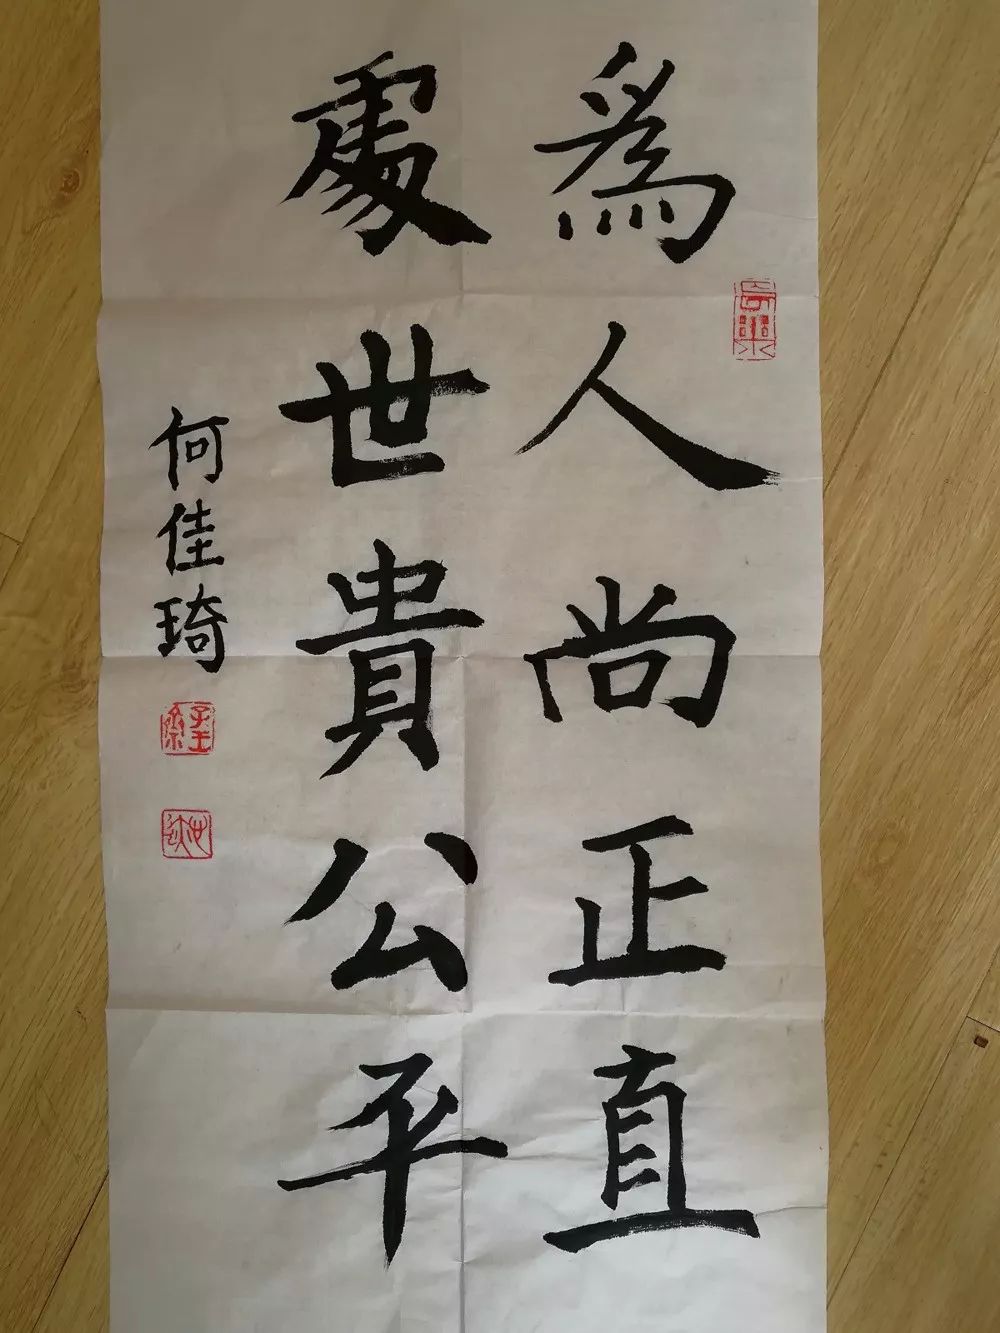 爲人尚正直
處世貴公平
何佳琦